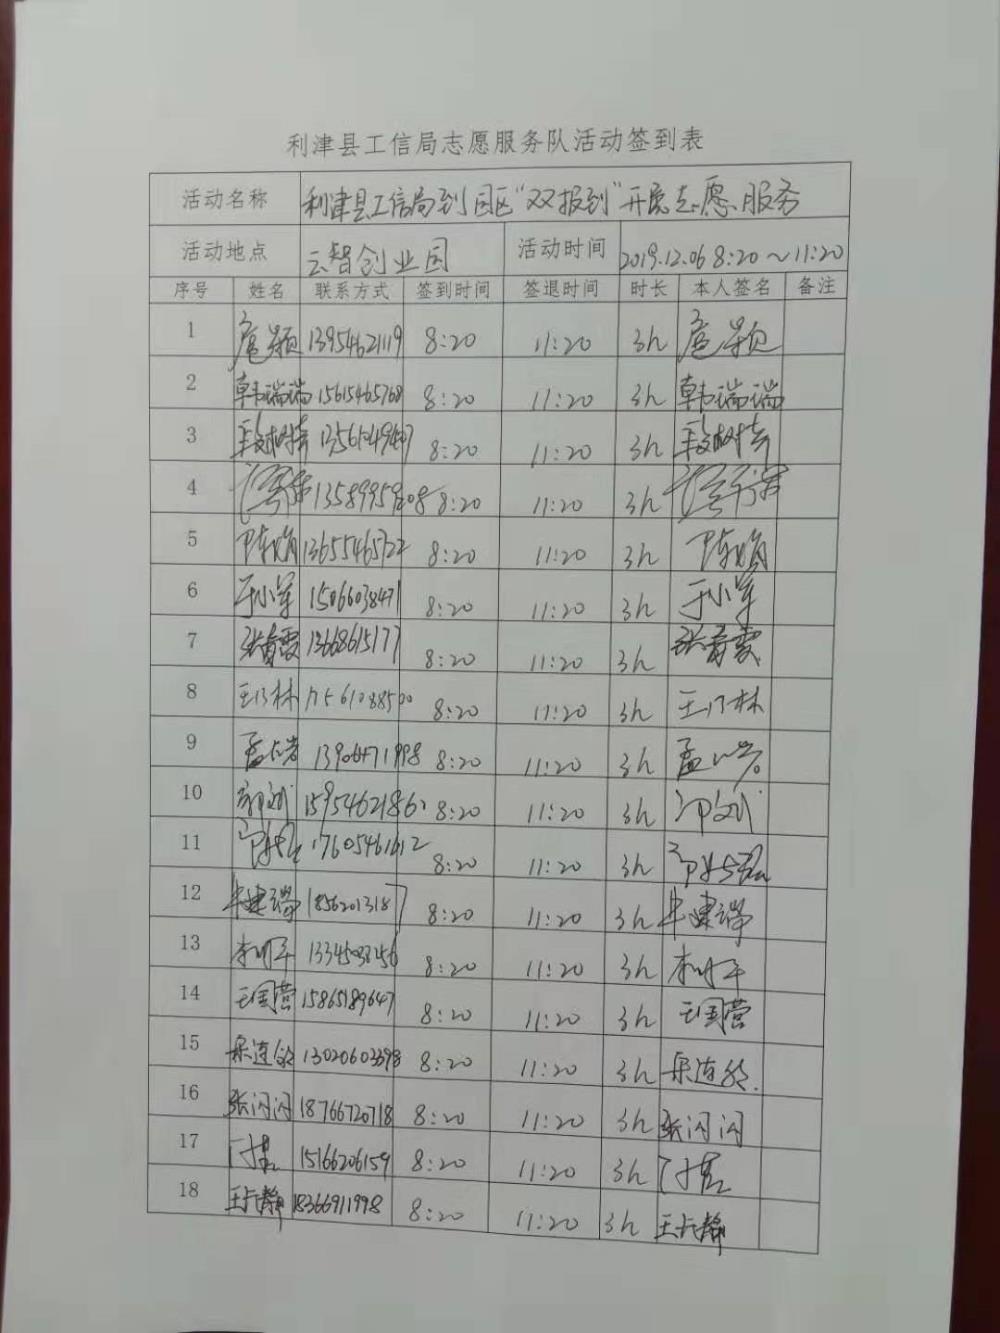 利津县工信局志愿服务队活动签到表
活动名称 利津县工信局到园区“双报到”开展志愿服务
活动地点 云智创业园 活动时间 2019.12.06 8:20~11:20
序号 姓名 联系方式 签到时间 签退时间 时长 本人签名 备注
1 扈颖 13954621119 8:20 11:20 3h 扈颖
2 韩瑞瑞 15615465768 8:20 11:20 3h 韩瑞瑞
3 8:20 11:20 3h
4 8:20 11:20 3h
5 陈娟 13655465722 8:20 11:20 3h 陈娟
6 于小军 15066038471 8:20 11:20 3h 于小军
7 张春霞 13668615177 8:20 11:20 3h 张春霞
8 王乃林 8:20 11:20 3h 王乃林
9 孟 13906471998 8:20 11:20 3h 孟
10 8:20 11:20 3h
11 17605461612 8:20 11:20 3h
12 18562013187 8:20 11:20 3h
13 8:20 11:20 3h
14 王国营 15865189647 8:20 11:20 3h 王国营
15 13020603398 8:20 11:20 3h
16 张闪闪 18766720718 8:20 11:20 3h 张闪闪
17 15166206159 8:20 11:20 3h
18 18366911998 8:20 11:20 3h